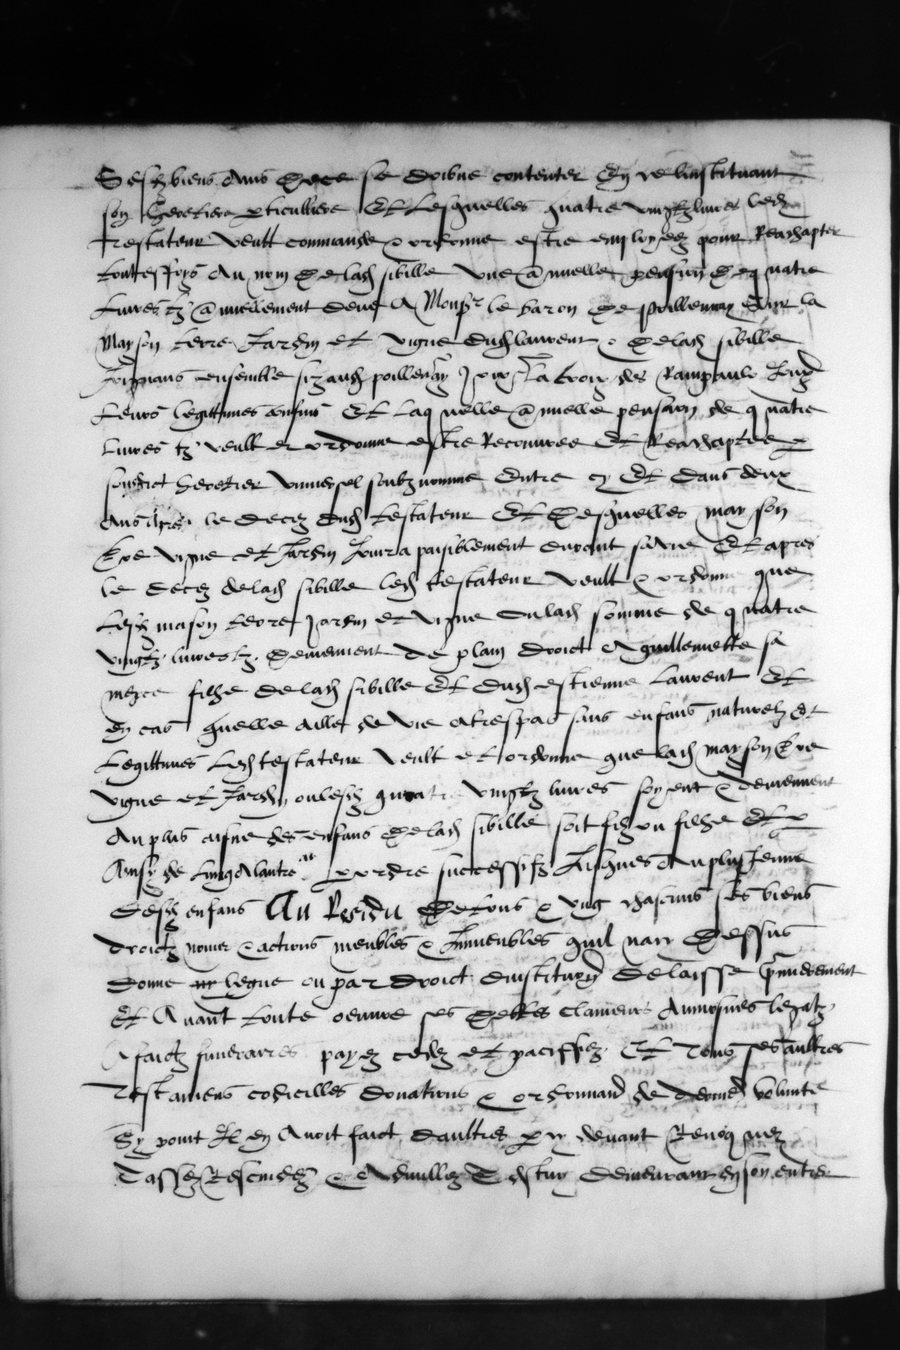 Sesd biens Ains de ce se doibve contenter En ce linstituant
son heretiere particulliere Et lesquelles quatre vingtz livres led
testateur veult commande & ordonne estre employez pour Reachapter
touttesfoys Au nom de lad sibille une annuelle pension de quatre
livres tz annuellement deue A Monsr le baron de poillenay sur la
Mayson terre Jardin et vigne dud laurent & de lad sibille
Joignans ensemble siz aud poillenay la Croix des Rampaulx
leurs legittimes confins Et laquelle annuelle pension de quatre
livres tz veult et ordonne estre Recouvree Et Reachaptee p
sondict heretier universel soubz nomme Entre cy Et dans deux
Ans Apres le decez dud testateur Et desquelles mayson
tre vigne et Jardin Jouira paisiblement durant sa vie Et apres
le decez de lad sibille led testateur veult & ordonne que
lesd mayson terre jardin et vigne ou lad somme de quatre
vingtz livres tz deviennent de plain droict A guillemette sa
mere filhe de lad sibille Et dud estienne laurent Et
En cas quelle aille de vie a trespas sans enfans naturelz Et
legittimes led testateur veult et ordonne que lad mayson tre
vigne et Jardin ou lesd quatre vingtz livres soyent & deviennent
Au plus aisne des enfans de lad sibille soit filz ou filhe Et
Ainsy de lung A lautre par ordre successifz Jusques Au plus Jeune
desd enfans Au Residu de tous & ung chascuns ses biens
droictz noms & actions meubles & Immeubles quil na cy dessus
donne legue ou par droict dinstitution delaisse premierement
Et Avant toute oeuvre ses debtes clameurs Aumosnes legatz
A faictz funerares payez cedez et pacifffiez Et tous ses aultres
Testamens codicilles donations & ordonnances de derniere volunte
Sy point Il en Avoit faict daultres par cy devant Revoquez
Cassez Rescindez & Adnullez Cestuy demeurant en son entier